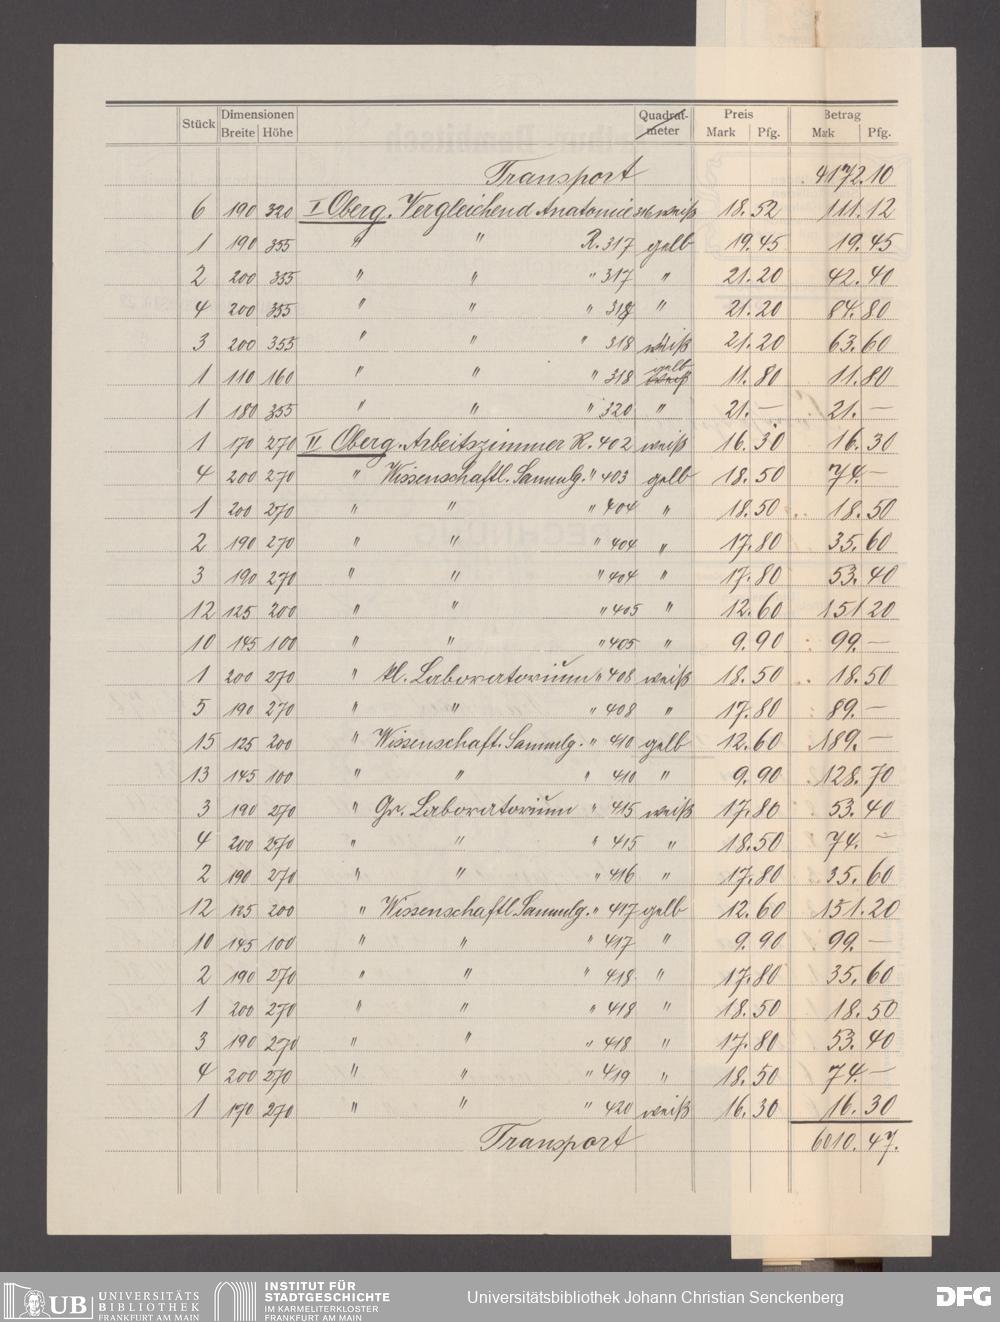 Stück Dimensionen Quadrat-meter Preis Betrag
Breite Höhe Mark Pfg. Mark Pfg.
Transport 4172.10
6 190 320 I Oberg. Vergleichend Anatomie 316 weiß 18.52 111.12
1 190 355 " " R. 317 gelb 19.45 19.45
2 200 355 " " " 317 " 21.20 42.40
4 200 355 " " " 318 " 21.20 84.80
3 200 355 " " " 318 weiß 21.20 63.60
1 110 160 " " " 318 gelb 11.80 11.80
1 180 355 " " " 320 " 21.— 21.—
1 170 270 II Oberg. Arbeitszimmer R. 402 weiß 16.30 16.30
4 200 270 " Wissenschaftl. Sammlg. " 403 gelb 18.50 74.—
1 200 270 " " " 404 " 18.50 18.50
2 190 270 " " " 404 " 17.80 35.60
3 190 270 " " " 404 " 17.80 53.40
12 125 200 " " " 405 " 12.60 151.20
10 145 100 " " " 405 " 9.90 99.—
1 200 270 " kl. Laboratorium " 408 weiß 18.50 18.50
5 190 270 " " " 408 " 17.80 89.—
15 125 200 " Wissenschaft. Sammlg. " 410 gelb 12.60 189.—
13 145 100 " " " 410 " 9.90 128.70
3 190 270 " Gr. Laboratorium " 415 weiß 17.80 53.40
4 200 270 " " " 415 " 18.50 74.—
2 190 270 " " " 416 " 17.80 35.60
12 125 200 " Wissenschaftl. Sammlg. " 417 gelb 12.60 151.20
10 145 100 " " " 417 " 9.90 99.—
2 190 270 " " " 418 " 17.80 35.60
1 200 270 " " " 418 " 18.50 18.50
3 190 270 " " " 418 " 17.80 53.40
4 200 270 " " " 419 " 18.50 74.—
1 170 270 " " " 420 weiß 16.30 16.30
Transport 6010.47.
UB UNIVERSITÄTS BIBLIOTHEK FRANKFURT AM MAIN
INSTITUT FÜR STADTGESCHICHTE IM KARMELITERKLOSTER FRANKFURT AM MAIN
Universitätsbibliothek Johann Christian Senckenberg
DFG